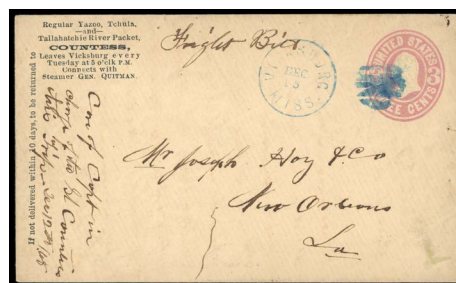 Regular Yazoo, Tchula,
—and—
Tallahatchie River Packet,
COUNTESS,
Leaves Vicksburg every
Tuesday at 5 o'clk P.M.
Connects with
Steamer GEN. QUITMAN.
If not delivered within 10 days, to be returned to
Freight Bill
VICKSBURG
DEC
15
MISS.
UNITED STATES
THREE CENTS
Mr Joseph Hoy & Co
New Orleans
La